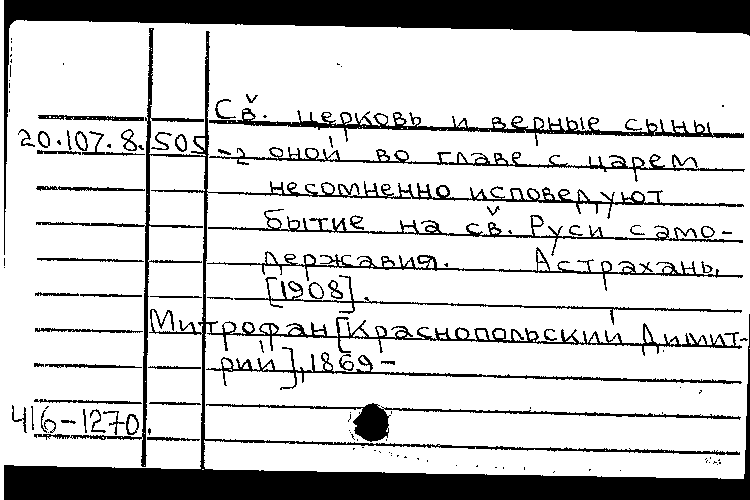 Св. церковь и верные сыны
20.107.8.505-2 оной во главе с царем
несомненно исповедуют
бытие на св. Руси само-
державия. Астрахань,
[1908].
Митрофан [Краснопольский Димит-
рий], 1869-
416-1270.